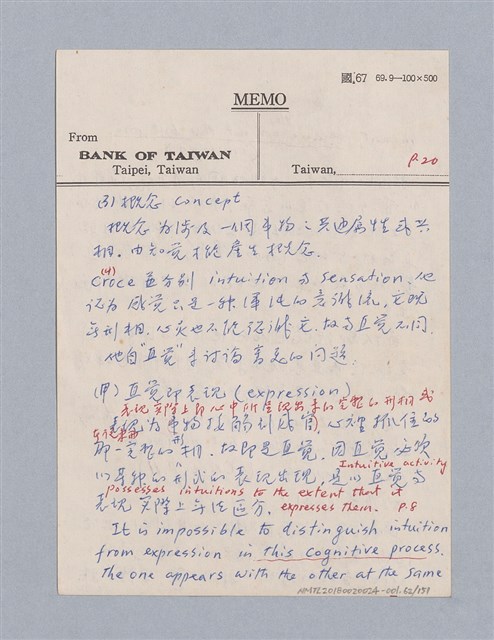 國.67 69.9—100×500
MEMO
From
BANK OF TAIWAN
Taipei, Taiwan
Taiwan,
P.20
(3) 概念 concept
概念為涉及一個事物之共通屬性或共
相. 由知覺才能產生概念.
(4)
Croce 並分別 intuition 与 sensation. 他
認為感覺只是一種渾沌的意識流, 它既
無形相. 心灵也不能認識它. 故与直覺不同.
他自“直覺”來討論美之的問題.
(甲) 直覺即表現 (expression)
表現实際上即心中所呈現出來的完整的形相或
表現為事物接触到感官, 心灵抓住的
那一完整的形相. 故即是直覺. 因直覺必以
的形式的表現出現, 是以直覺与
Intuitive activity
possesses intuitions to the extent that it
表現实際上無法區分. expresses them. P.8
It is impossible to distinguish intuition
from expression in this cognitive process.
The one appears with the other at the same
NMTL20180020024-001.62/151